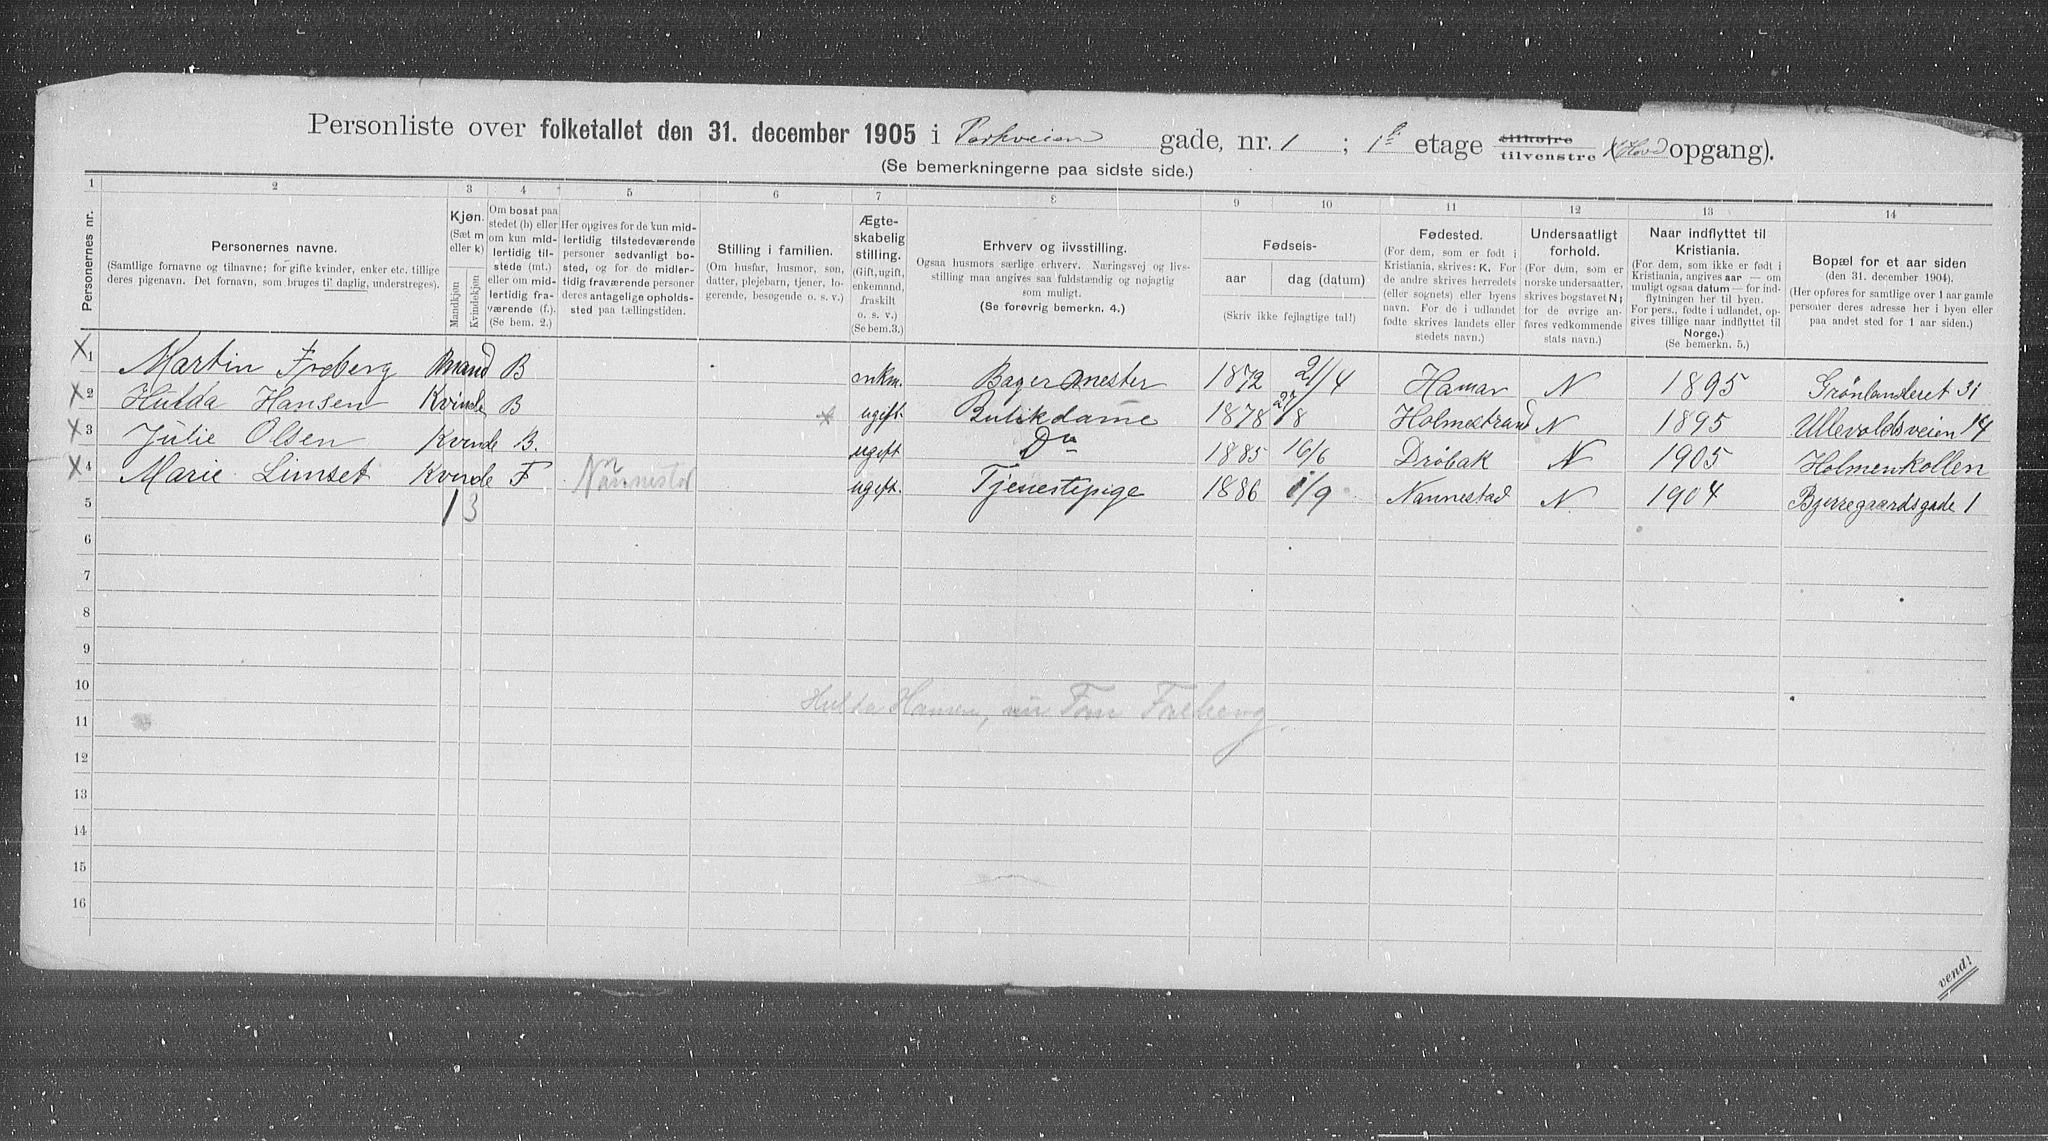 Personliste over folketallet den 31. december 1905 i Parkveien gade, nr. 1 ; 1ste etage tilhøjre tilvenstre opgang).
(Se bemerkningerne paa sidste side.)
1 2 3 4 5 6 7 8 9 10 11 12 13 14
Personernes nr.
Personernes navne.
(Samtlige fornavne og tilnavne; for gifte kvinder, enker etc. tillige deres pigenavn. Det fornavn, som bruges til daglig, understreges).
Kjøn. (Sæt m eller k)
Mandkjøn Kvindekjøn
Om bosat paa stedet (b) eller om kun midlertidig tilstede (mt.) eller om midlertidig fraværende (f.). (Se bem. 2.)
Her opgives for de kun midlertidig tilstedeværende personer sedvanligt bosted, og for de midlertidig fraværende personer deres antagelige opholdssted paa tællingstiden.
Stilling i familien.
(Om husfar, husmor, søn, datter, plejebarn, tjener, logerende, besøgende o. s. v.)
Ægteskabelig stilling.
(Gift, ugift, enkemand, fraskilt o. s. v.) (Se bem.3.)
Erhverv og livsstilling.
Ogsaa husmors særlige erhverv. Næringsvej og livsstilling maa angives saa fuldstændig og nøjagtig som muligt.
(Se forøvrig bemerkn. 4.)
Fødsels-
aar dag (datum)
(Skriv ikke fejlagtige tal!)
Fødested.
(For dem, som er født i Kristiania, skrives: K. For de andre skrives herredets (eller sognets) eller byens navn. For de i udlandet fødte skrives landets eller stedets navn.)
Undersaatligt forhold.
(For dem, som er norske undersaatter, skrives bogstavet N; for de øvrige anføres vedkommende stats navn.)
Naar indflyttet til Kristiania.
(For dem, som ikke er født i Kristiania, angives aar — om muligt ogsaa datum — for indflytningen her til byen. For pers., fødte i udlandet, opgives tillige naar indflyttet til Norge.)
(Se bemerkn. 5.)
Bopæl for et aar siden
(den 31. december 1904).
(Her opføres for samtlige over 1 aar gamle personer deres adresse her i byen eller paa andet sted for 1 aar siden.)
X 1 Martin Froberg Mand B enkm. Bagermester 1872 21/4 Hamar N 1895 Grønlandleret 31
X 2 Hulda Hansen Kvinde B * ugift. Butikdame 1878 27/8 Holmestrand N 1895 Ullevoldsveien 14
X 3 Julie Olsen Kvinde B. ugift Do 1885 16/6 Drøbak N 1905 Holmenkollen
X 4 Marie Limset Kvinde F Nannestad ugift. Tjenestepige 1886 1/9 Nannestad N 1904 Bjerregaardsgade 1
5 1 3
6
7
8
9
10
Hulda Hansen, nu Fru Froberg.
11
12
13
14
15
16
vend!